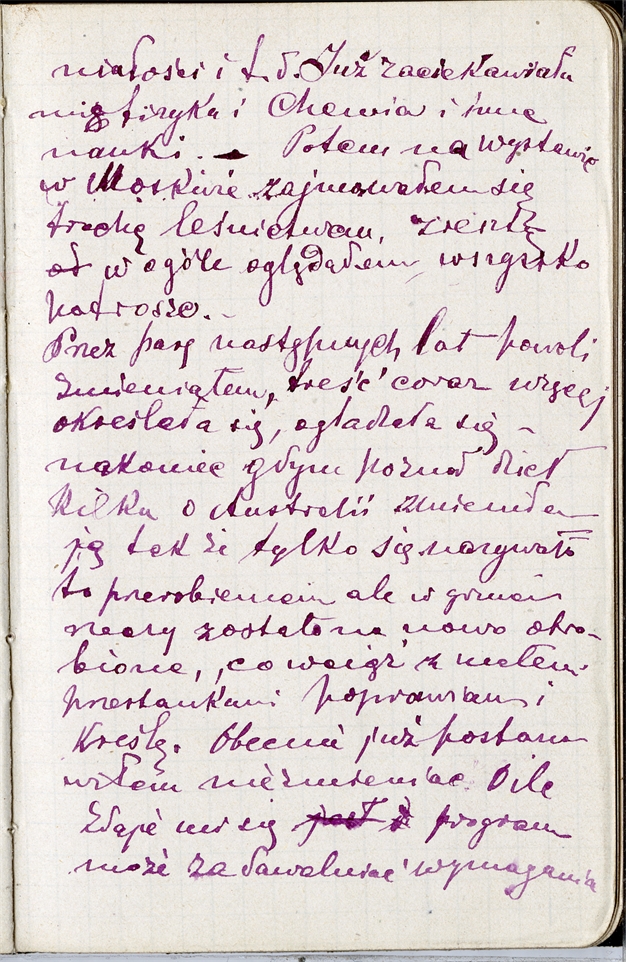 niałości i t. d. Już zaciekawiała
mię fizyka i Chemia i inne
nauki. — Potem na wystawie
w Moskwie zajmowałem się
trochę leśnictwem, zresztą
w ogóle oglądałem wszystko
potrosze. -
Przez parę następnych lat powoli
zmieniałem, treść coraz więcej
określała się, ogładzała się -
nakoniec gdym poznał dzieł
kilka o Australii zmieniłem
ją tak że tylko się nazywało
to przerobieniem ale w
rzeczy zostało na nowo obro-
bione, co wciąż z małemi
przestankami poprawiam i
kreślę. Obecnie już postano
wiłem nie zmieniać. O ile
zdaje mi się program
może zadawalniać wymagania